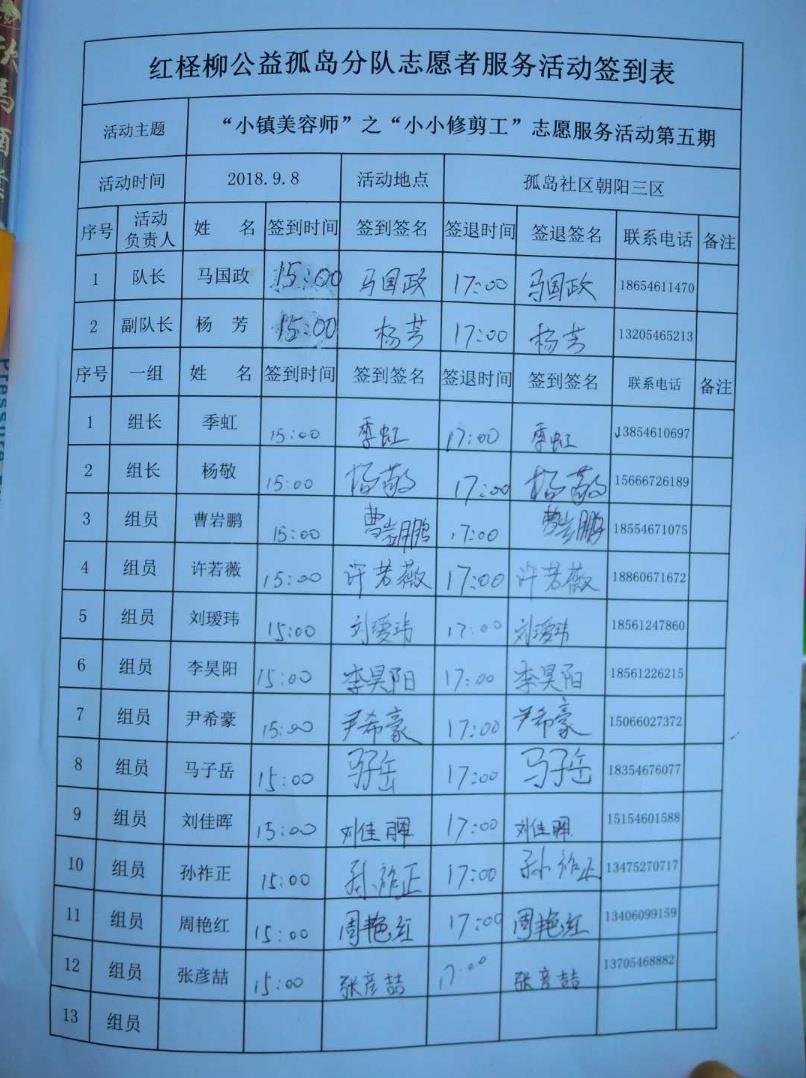 红柽柳公益孤岛分队志愿者服务活动签到表
活动主题 “小镇美容师”之“小小修剪工”志愿服务活动第五期
活动时间 2018.9.8 活动地点 孤岛社区朝阳三区
序号 活动负责人 姓 名 签到时间 签到签名 签退时间 签退签名 联系电话 备注
1 队长 马国政 15:00 马国政 17:00 马国政 18654611470
2 副队长 杨 芳 15:00 杨芳 17:00 杨芳 13205465213
序号 一组 姓 名 签到时间 签到签名 签退时间 签到签名 联系电话 备注
1 组长 季虹 15:00 季虹 17:00 季虹 J3854610697
2 组长 杨敬 15:00 杨敬 17:00 杨敬 15666726189
3 组员 曹岩鹏 15:00 曹岩鹏 17:00 曹岩鹏 18554671075
4 组员 许若薇 15:00 许若薇 17:00 许若薇 18860671672
5 组员 刘瑷玮 15:00 刘瑷玮 17:00 刘瑷玮 18561247860
6 组员 李昊阳 15:00 李昊阳 17:00 李昊阳 18561226215
7 组员 尹希豪 15:00 尹希豪 17:00 尹希豪 15066027372
8 组员 马子岳 15:00 马子岳 17:00 马子岳 18354676077
9 组员 刘佳晖 15:00 刘佳晖 17:00 刘佳晖 15154601588
10 组员 孙祚正 15:00 孙祚正 17:00 孙祚正 13475270717
11 组员 周艳红 15:00 周艳红 17:00 周艳红 13406099159
12 组员 张彦喆 15:00 张彦喆 17:00 张彦喆 13705468882
13 组员